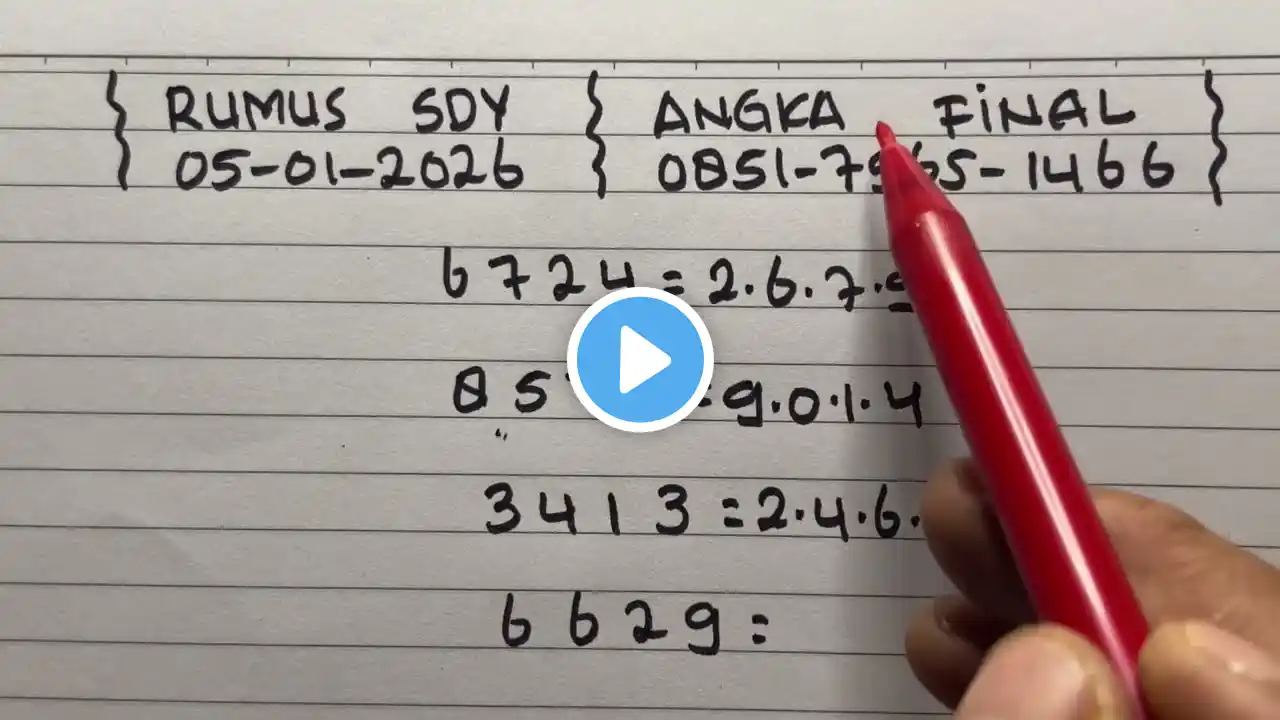 RUMUS SDY
05-01-2026
ANGKA FINAL
0851-7965-1466
6724=2.6.7.9
85 =9.0.1.4
3413=2.4.6.
6629=